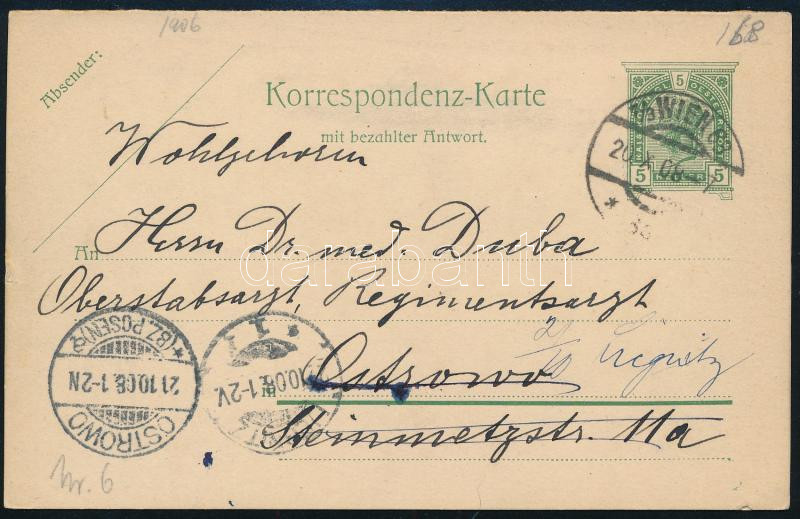 1906
168
Absender:
Korrespondenz-Karte
mit bezahlter Antwort.
5
5 5
WIEN
20.X.08
Wohlgeboren
An Herrn Dr. med. Duba
Oberstabsarzt, Regimentsarzt
Ostrowo
Steinmetzstr. 11a
OSTROWO
21.10.08.1-2N
*(BZ. POSEN)
10.08.1-2V.
Nr. 6
darabanth